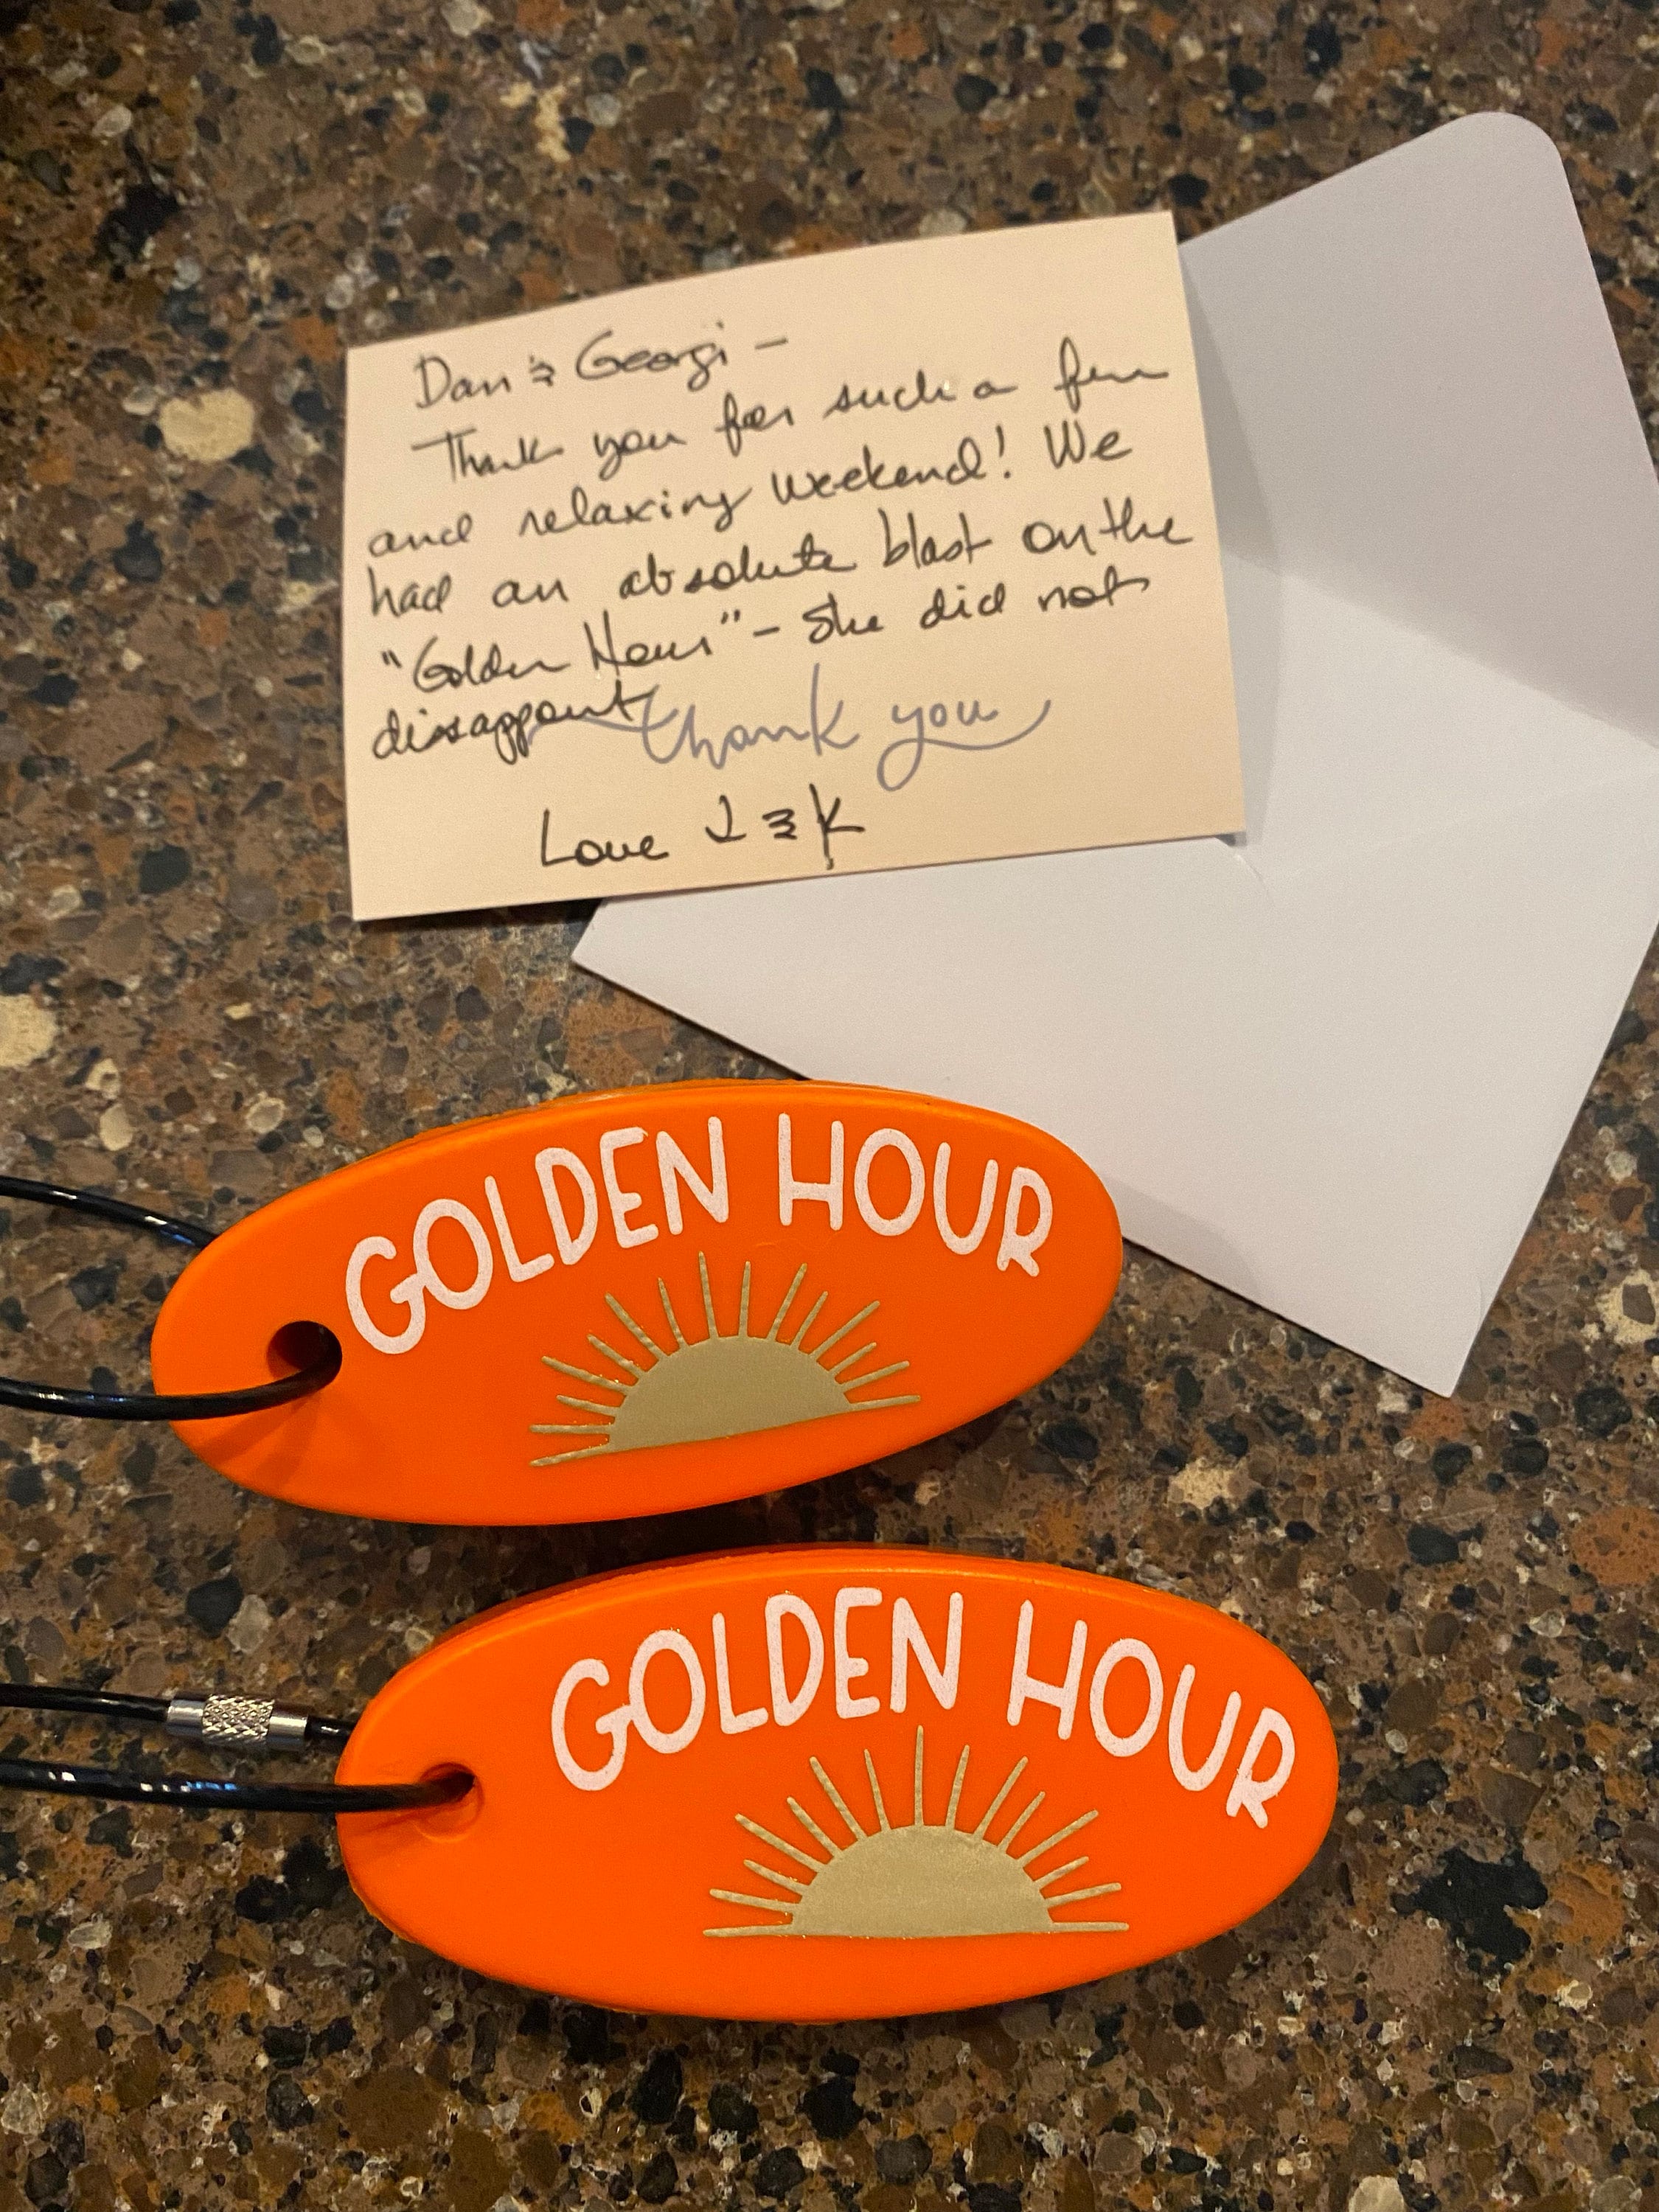 Dan & Georgi -
Thank you for such a fun
and relaxing weekend! We
had an absolute blast on the
"Golden Hour" - She did not
dissappoint
thank you
Love J & K
GOLDEN HOUR
GOLDEN HOUR